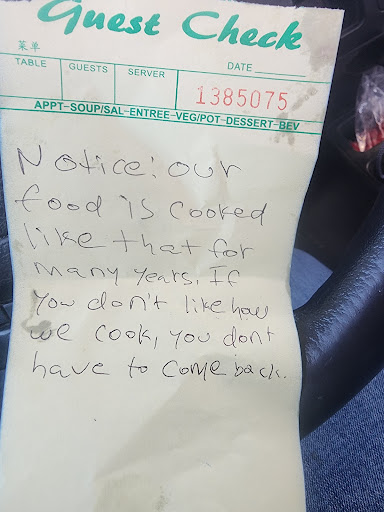 Guest Check
菜单
TABLE GUESTS SERVER DATE
1385075
APPT-SOUP/SAL-ENTREE-VEG/POT-DESSERT-BEV
Notice: our
food is cooked
like that for
many years. If
you don't like how
we cook, you dont
have to come back.